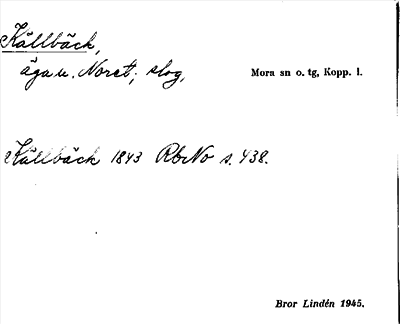 Källbäck,
äga u. Noret; skog,
Mora sn o. tg, Kopp. l.
Källbäck 1843 RbNo s. 438.
Bror Lindén 1945.